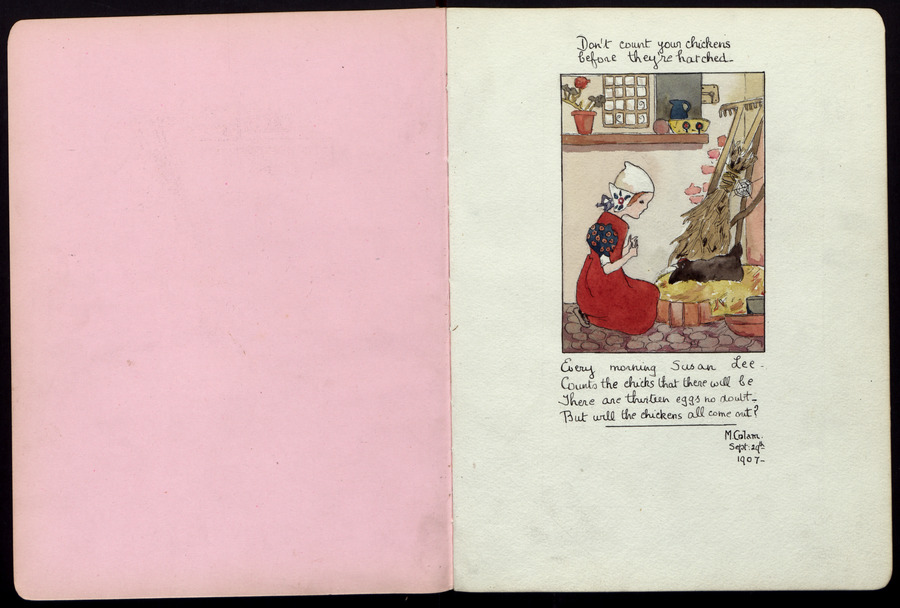 Don't count your chickens
before they're hatched_
Every morning Susan Lee.
Counts the chicks that there will be
There are thirteen eggs no doubt_
But will the chickens all come out?
M. Colam.
Sept. 29th
1907_